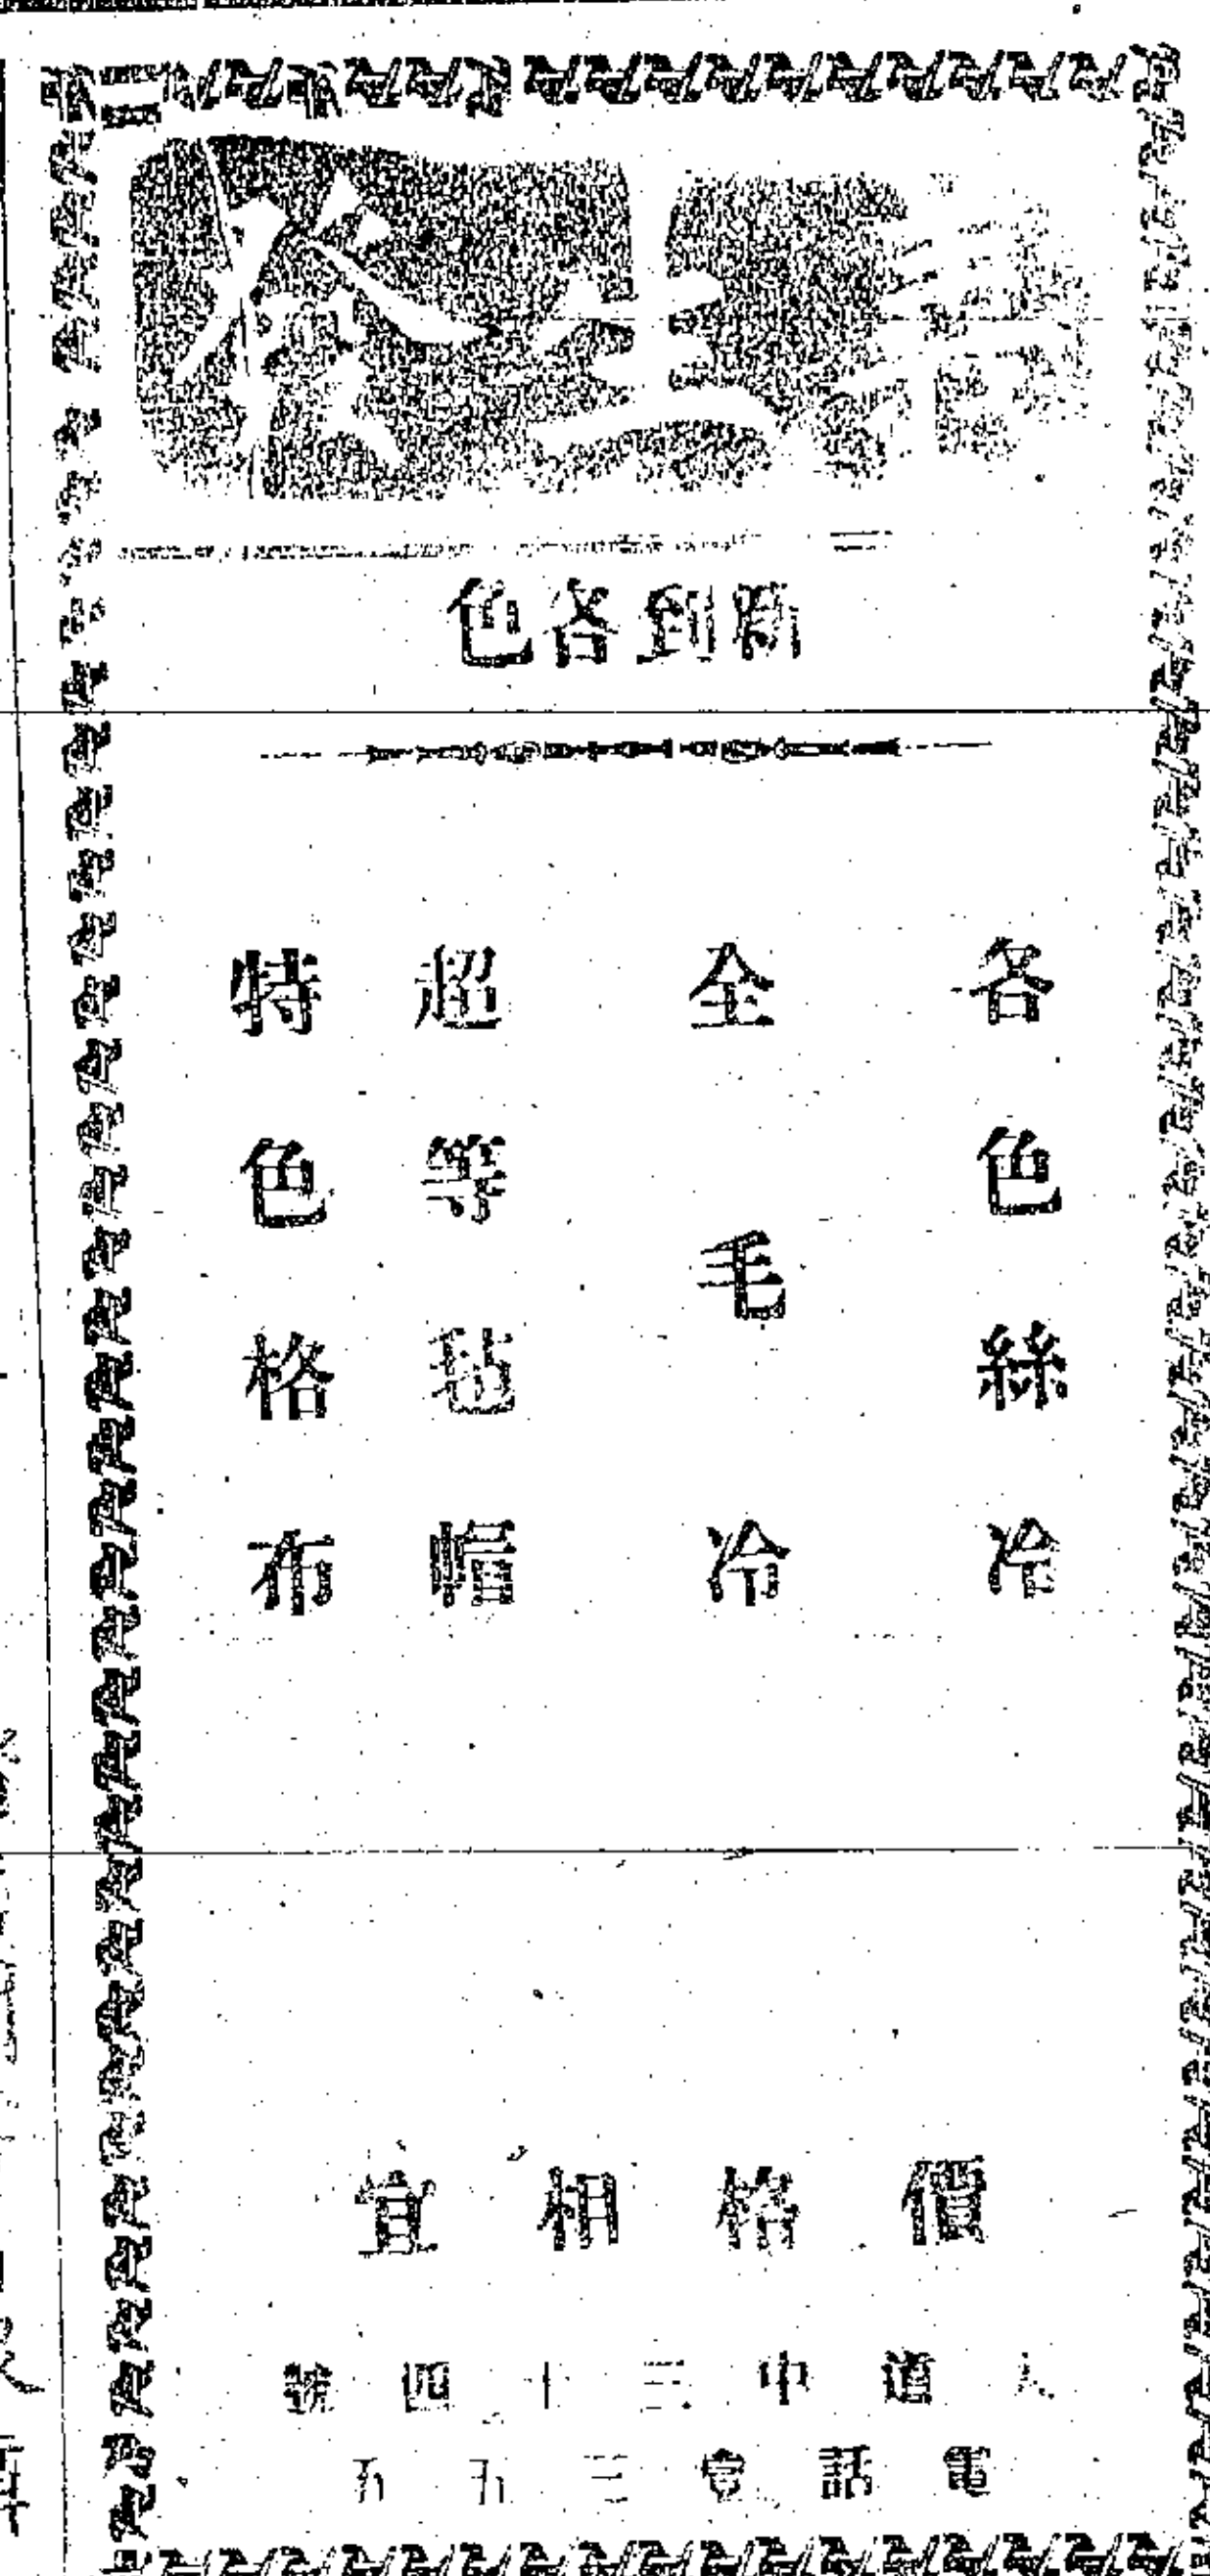 新到各色
各色絲冷
全毛冷
超等毡帽
特色格布
價格相宜
大道中三十四號
電話壹三五五